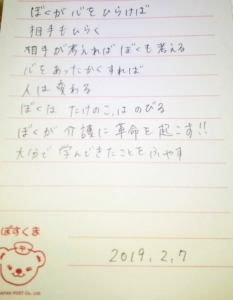 ぼくが心をひらけば
相手もひらく
相手が考えれば ぼくも考える
心をあったかくすれば
人は変わる
ぼくは たけのこ はのびる
ぼくが 介護に革命を起こす!!
大分で 学んできたことを ふやす
2019.2.7
ぽすくま
JAPAN POST Co., Ltd.